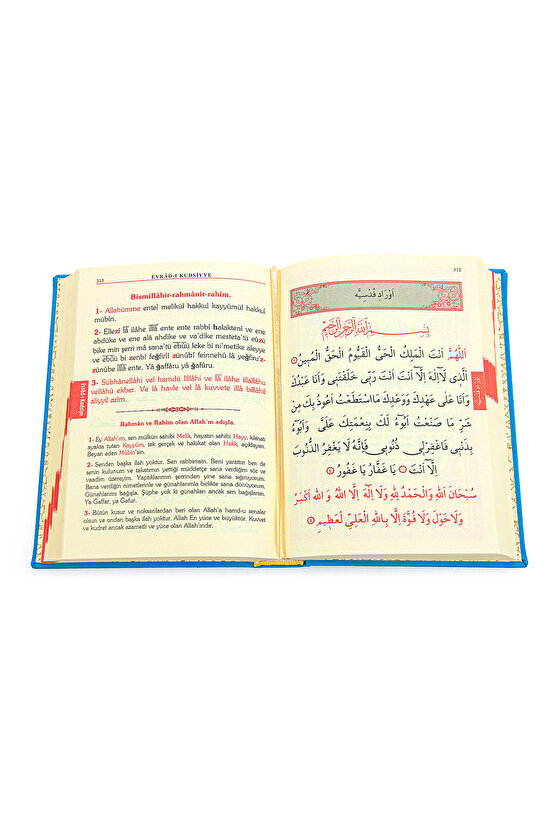 312
اَوْرَادِ قُدْسِيَّه
بِسْمِ اللّٰهِ الرَّحْمٰنِ الرَّحِيمِ
اَللّٰهُمَّ اَنْتَ الْمَلِكُ الْحَيُّ الْقَيُّومُ الْحَقُّ الْمُبِينُ
اَلَّذِى لَآ اِلٰهَ اِلَّا اَنْتَ اَنْتَ رَبِّى خَلَقْتَنِى وَاَنَا عَبْدُكَ
وَاَنَا عَلٰى عَهْدِكَ وَوَعْدِكَ مَااسْتَطَعْتُ اَعُوذُ بِكَ مِنْ
شَرِّ مَا صَنَعْتُ اَبُوءُ لَكَ بِنِعْمَتِكَ عَلَىَّ وَاَبُوءُ
بِذَنْبِى فَاغْفِرْلِى ذُنُوبِى فَاِنَّهُ لَا يَغْفِرُ الذُّنُوبَ
اِلَّا اَنْتَ يَا غَفَّارُ يَا غَفُورُ
سُبْحَانَ اللّٰهِ وَالْحَمْدُ لِلّٰهِ وَلَا اِلٰهَ اِلَّا اللّٰهُ وَ اللّٰهُ اَكْبَرُ
وَلَا حَوْلَ وَلَا قُوَّةَ اِلَّا بِاللّٰهِ الْعَلِىِّ الْعَظِيمِ
اَوْرَادِ قُدْسِيَّه
313
EVRÂD-I KUDSİYYE
Bismillâhir-rahmânir-rahîm.
1- Allahümme entel melikül hakkul kayyûmül hakkul
mübîn.
2- Ellezî lâ ilâhe illâ ente ente rabbî halaktenî ve ene
abdüke ve ene alâ ahdike ve va'dike mesteta'tü eûzü
bike min şerri mâ sana'tü ebûü leke bi ni'metike aleyye
ve ebûü bi zenbî feğfirlî zünûbî feinnehû lâ yeğfiru'z-
zünûbe illâ ente. Yâ ğaffâru yâ ğafûru.
3- Sübhânellâhi vel hamdü lillâhi ve lâ ilâhe illallâhu
vellâhü ekber. Ve lâ havle vel lâ kuvvete illâ billâhil
aliyyil azîm.
Rahmân ve Rahîm olan Allah'ın adıyla.
1- Ey Allah'ım, sen mülkün sahibi Melik, hayatın sahibi Hayy, kâinatı
ayakta tutan Kayyûm, tek gerçek ve hakikat olan Hakk, açıklayan,
Beyan eden Mübîn'sin.
2- Senden başka ilah yoktur. Sen rabbimsin. Beni yarattın ben de
senin kulunum ve takatımın yettiği müddetçe sana verdiğim söz ve
vaadim üzereyim. Yaptıklarımın şerrinden yine sana sığınıyorum.
Bana verdiğin nimetlerinle ve günahlarımla birlikte sana dönüyorum.
Günahlarımı bağışla. Şüphe yok ki günahları ancak sen bağışlarsın.
Ya Gaffar, ya Gafur.
3- Bütün kusur ve noksanlardan beri olan Allah'a hamd-u senalar
olsun ve ondan başka ilah yoktur. Allah En yüce ve büyüktür. Kuvvet
ve kudret ancak azametli ve yüce olan Allah'ındır.
Evrâd-ı Kudsiyye